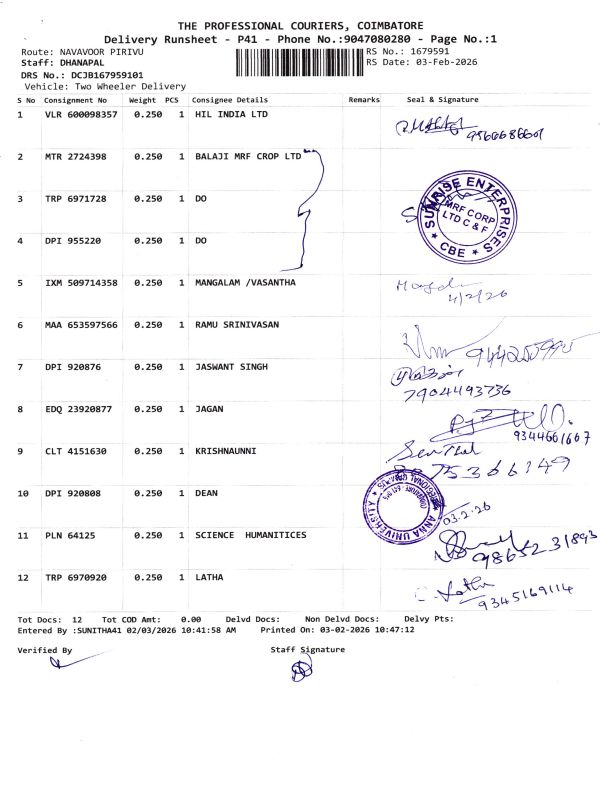 THE PROFESSIONAL COURIERS, COIMBATORE
Delivery Runsheet - P41 - Phone No.:9047080280 - Page No.:1
Route: NAVAVOOR PIRIVU RS No.: 1679591
Staff: DHANAPAL RS Date: 03-Feb-2026
DRS No.: DCJB167959101
Vehicle: Two Wheeler Delivery
S No Consignment No Weight PCS Consignee Details Remarks Seal & Signature
1 VLR 600098357 0.250 1 HIL INDIA LTD
2 MTR 2724398 0.250 1 BALAJI MRF CROP LTD
3 TRP 6971728 0.250 1 DO
SUNRISE ENTERPRISES
MRF CORP
LTD C & F
★ CBE ★
4 DPI 955220 0.250 1 DO
5 IXM 509714358 0.250 1 MANGALAM /VASANTHA
4/2/26
6 MAA 653597566 0.250 1 RAMU SRINIVASAN
7 DPI 920876 0.250 1 JASWANT SINGH
7904493736
8 EDQ 23920877 0.250 1 JAGAN
9344661667
9 CLT 4151630 0.250 1 KRISHNAUNNI
10 DPI 920808 0.250 1 DEAN
ANNA UNIVERSITY
03.2.26
11 PLN 64125 0.250 1 SCIENCE HUMANITICES
9865231893
12 TRP 6970920 0.250 1 LATHA
Latha
9345169114
Tot Docs: 12 Tot COD Amt: 0.00 Delvd Docs: Non Delvd Docs: Delvy Pts:
Entered By :SUNITHA41 02/03/2026 10:41:58 AM Printed On: 03-02-2026 10:47:12
Verified By Staff Signature